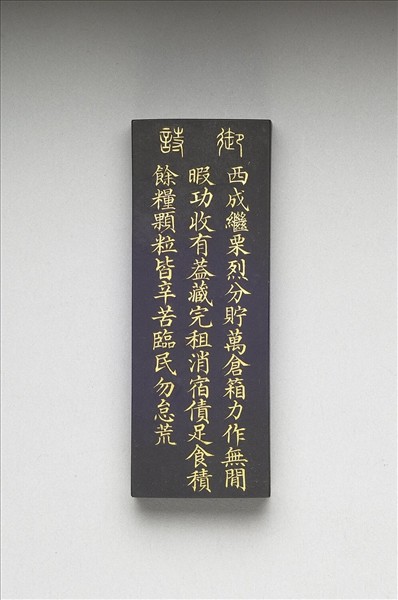 御詩
西成繼栗烈分貯萬倉箱力作無閒
暇功收有葢藏完租消宿債足食積
餘糧顆粒皆辛苦臨民勿怠荒